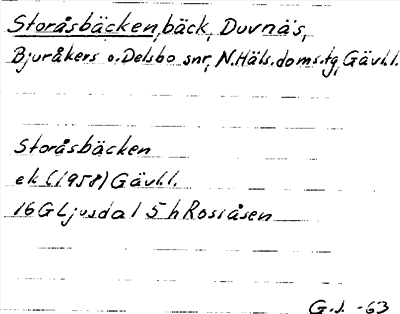 Storåsbäcken, bäck, Duvnäs,
Bjuråkers o. Delsbo snr, N. Häls. doms.tg, Gävl.l.
Storåsbäcken
ek (1958) Gävl.l.
16G Ljusdal 5h Rossåsen
G.J. -63